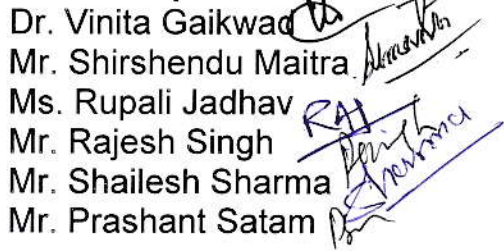 Dr. Vinita Gaikwad
Mr. Shirshendu Maitra
Ms. Rupali Jadhav RAJ
Mr. Rajesh Singh
Mr. Shailesh Sharma Sharma
Mr. Prashant Satam